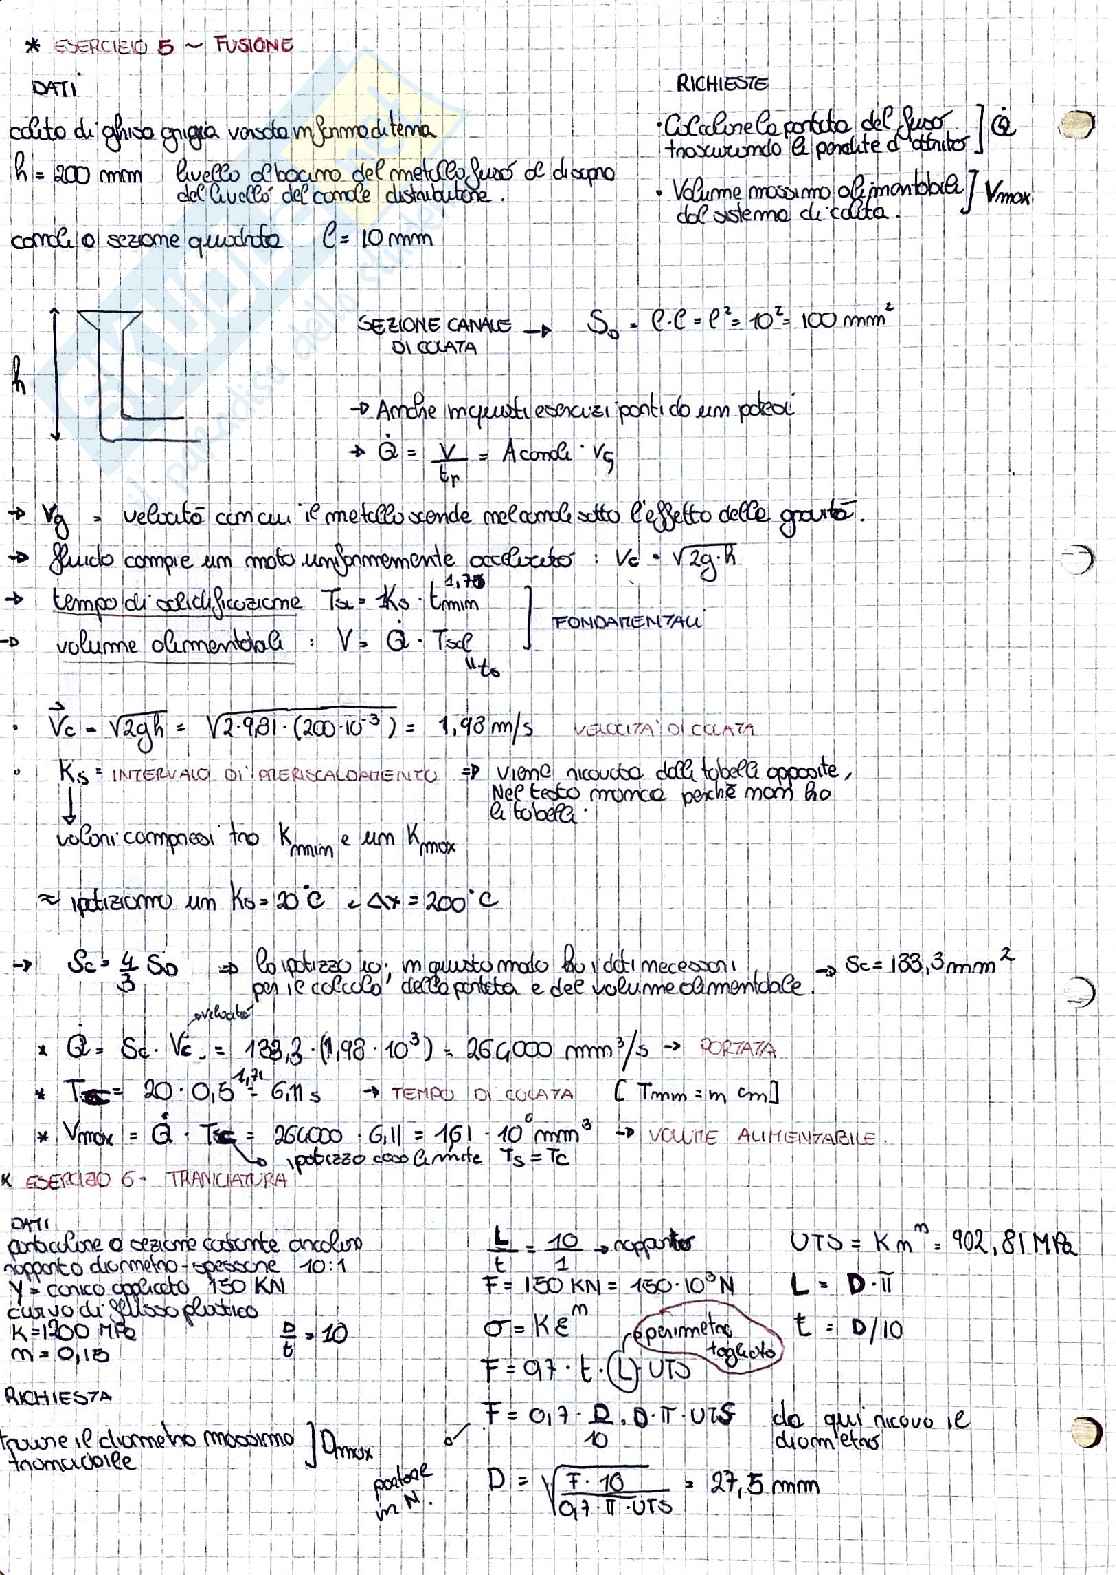 * ESERCIZIO 5 ~ FUSIONE
DATI
colata di ghisa grigia versata in forma di terra
h = 200 mm livello al bacino del metallo fuso al di sopra
del livello del canale distributore.
canale a sezione quadrata l = 10 mm
RICHIESTE
• Calcolare la portata del fuso
trascurando le perdite d'attrito ] Q̇
• Volume massimo alimentabile
dal sistema di colata. ] Vmax
h
SEZIONE CANALE DI COLATA → S₀ = l·l = l² = 10² = 100 mm²
→ Anche in questi esercizi parti da un potesi
→ Q̇ = V/tr = Acanale · vg
→ Vg = velocità con cui il metallo scende nel canale sotto l'effetto della gravità.
→ fluido compie un moto uniformemente accelerato : Vc = √2g·h
→ tempo di solidificazione Tsc = Ks · tmin^1,71
→ volume alimentabile : V = Q̇ · Tsol
"ts
] FONDAMENTALI
• Vc = √2gh = √2·9,81·(200·10⁻³) = 1,98 m/s VELOCITA' DI COLATA
• Ks = INTERVALLO DI PRERISCALDAMENTO ⇒ viene ricavata dalla tabella apposite,
Nel testo manca perchè non ho
la tabella.
↓
valori compresi tra Kmin e un Kmax
≈ ipotizziamo un Ks = 20°C e Δx = 200°C
→ Sc = 4/3 S₀ ⇒ lo ipotizzo io; in questo modo ho i dati necessari → Sc = 133,3 mm²
per il calcolo della portata e del volume alimentabile.
velocità
* Q̇ = Sc · Vc = 133,3 · (1,98 · 10³) = 264000 mm³/s → PORTATA
* Tsc = 20 · 0,5^1,71 = 6,11 s → TEMPO DI COLATA [Tmm = in cm]
* Vmax = Q̇ · Tsc = 264000 · 6,11 = 1,61 · 10⁶ mm³ → VOLUME ALIMENTABILE
ipotizzo caso limite Ts = Tc
* ESERCIZIO 6 - TRANCIATURA
DATI
particolare a sezione costante circolare
rapporto diametro-spessore 10:1
Y = carico applicato 150 KN
curva di flusso plastico
K = 1200 MPa
n = 0,15
D/t = 10
RICHIESTA
trovare il diametro massimo
tranciabile ] Dmax
L/t = 10/1 → rapporto
F = 150 KN = 150·10³ N
σ = Kεⁿ
perimetro tagliato
F = 0,7 · t · L · UTS
F = 0,7 · D/10 · D · π · UTS da qui ricavo il
diametro
portare in N.
D = √(F · 10 / 0,7 · π · UTS) = 27,5 mm
UTS = K nⁿ = 902,81 MPa
L = D·π
t = D/10